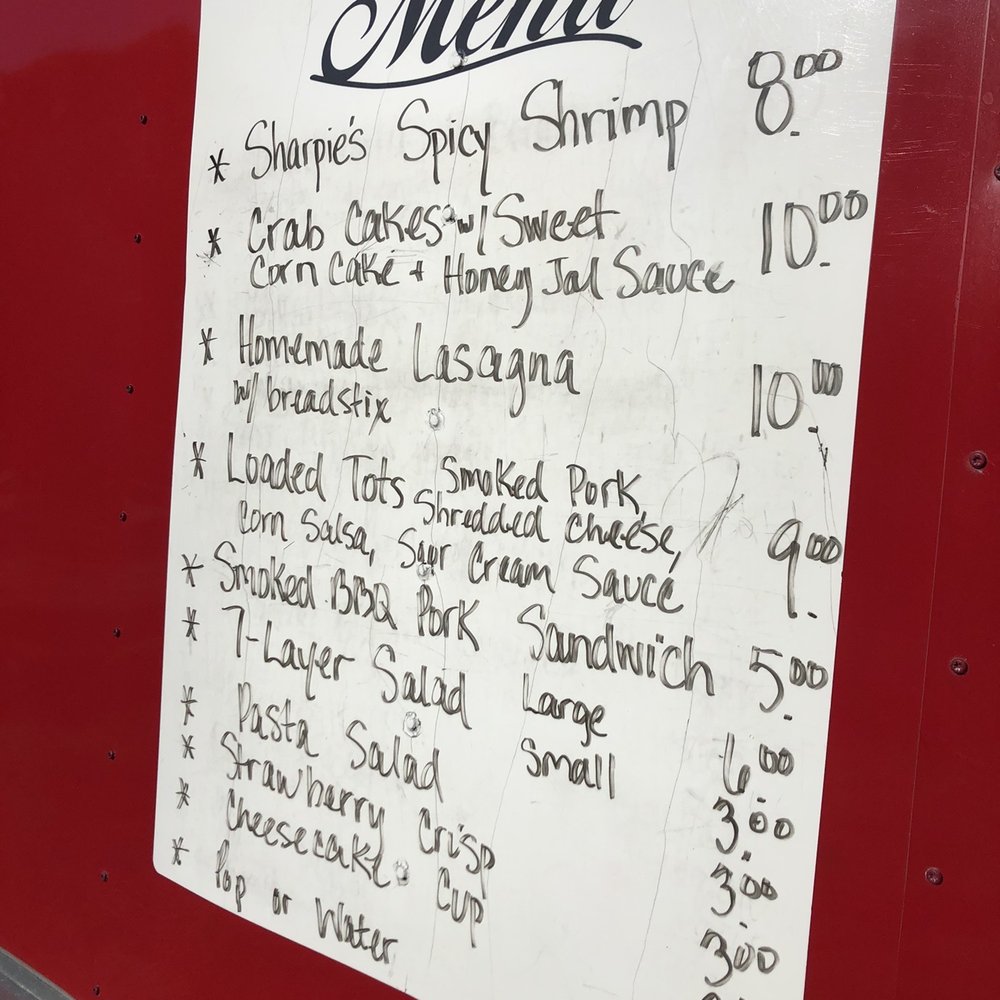 Menu
* Sharpie's Spicy Shrimp 8.00
* Crab Cakes w/ Sweet 10.00
Corn Cake + Honey Jal Sauce
* Homemade Lasagna 10.00
w/ breadstix
* Loaded Tots Smoked Pork,
Shredded Cheese, 9.00
Corn Salsa, Sour Cream Sauce
* Smoked BBQ Pork Sandwich 5.00
* 7-Layer Salad Large 6.00
* Pasta Salad Small 3.00
* Strawberry Crisp 3.00
* Cheesecake Cup 3.00
* Pop or Water